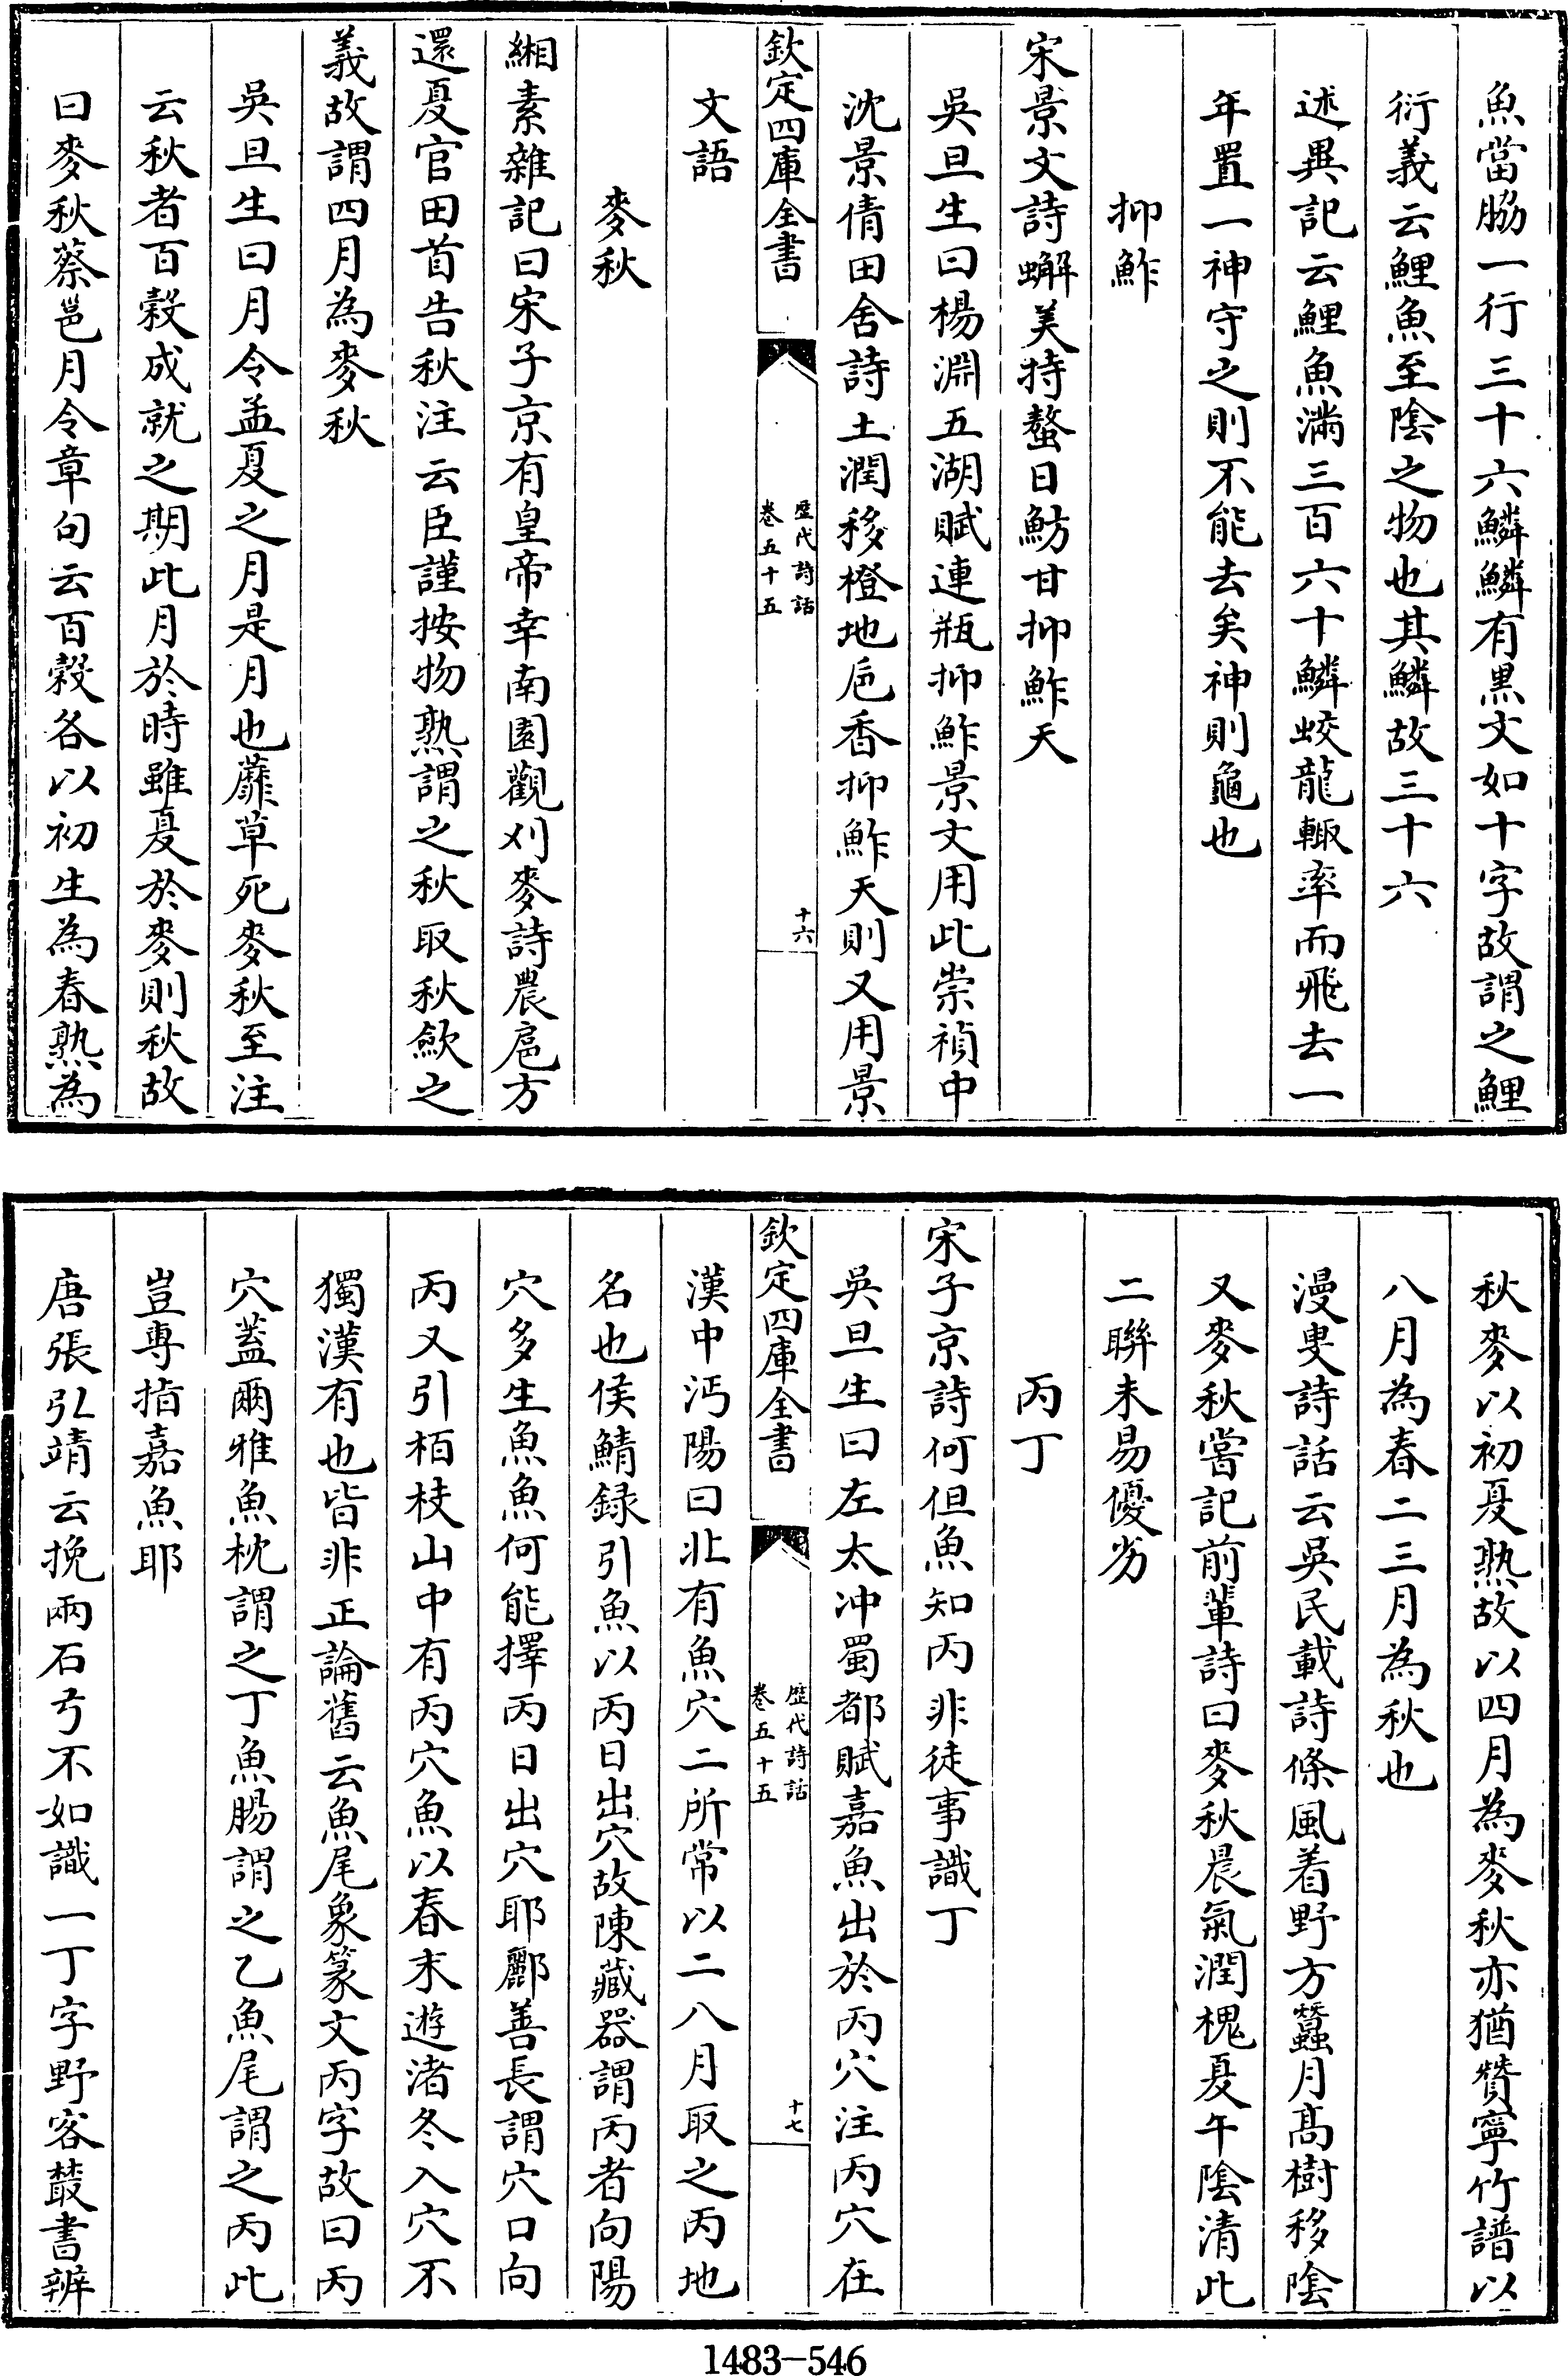 魚當脇一行三十六鱗鱗有黒文如十字故謂之鯉
衍義云鯉魚至隂之物也其鱗故三十六
述異記云鯉魚滿三百六十鱗蛟龍輙率而飛去一
年置一神守之則不能去矣神則龜也
抑鮓
宋景文詩蠏美持螯日魴甘抑鮓天
吳旦生曰楊淵五湖賦連瓶抑鮓景文用此崇禎中
沈景倩田舍詩土潤移橙地巵香抑鮓天則又用景
欽定四庫全書
歴代詩話
卷五十五
十六
文語
麥秋
緗素雜記曰宋子京有皇帝幸南園觀刈麥詩農扈方
還夏官田首告秋注云臣謹按物熟謂之秋取秋歛之
義故謂四月為麥秋
吳旦生曰月令孟夏之月是月也蘼草死麥秋至注
云秋者百穀成就之期此月於時雖夏於麥則秋故
曰麥秋蔡邕月令章句云百穀各以初生為春熟為
秋麥以初夏熟故以四月為麥秋亦猶贊寧竹譜以
八月為春二三月為秋也
漫叟詩話云吳民載詩條風着野方蠶月髙樹移隂
又麥秋嘗記前輩詩曰麥秋晨氣潤槐夏午隂清此
二聨未易優劣
丙丁
宋子京詩何但魚知丙非徒事識丁
吳旦生曰左太冲蜀都賦嘉魚出於丙穴注丙穴在
欽定四庫全書
歴代詩話
卷五十五
十七
漢中沔陽曰北有魚穴二所常以二八月取之丙地
名也侯鯖録引魚以丙日出穴故陳藏器謂丙者向陽
穴多生魚魚何能擇丙日出穴耶酈善長謂穴口向
丙又引栢枝山中有丙穴魚以春末遊渚冬入穴不
獨漢有也皆非正論舊云魚尾象篆文丙字故曰丙
穴蓋爾雅魚枕謂之丁魚腸謂之乙魚尾謂之丙此
豈専指嘉魚耶
唐張弘靖云挽兩石弓不如識一丁字野客叢書辨
1483-546